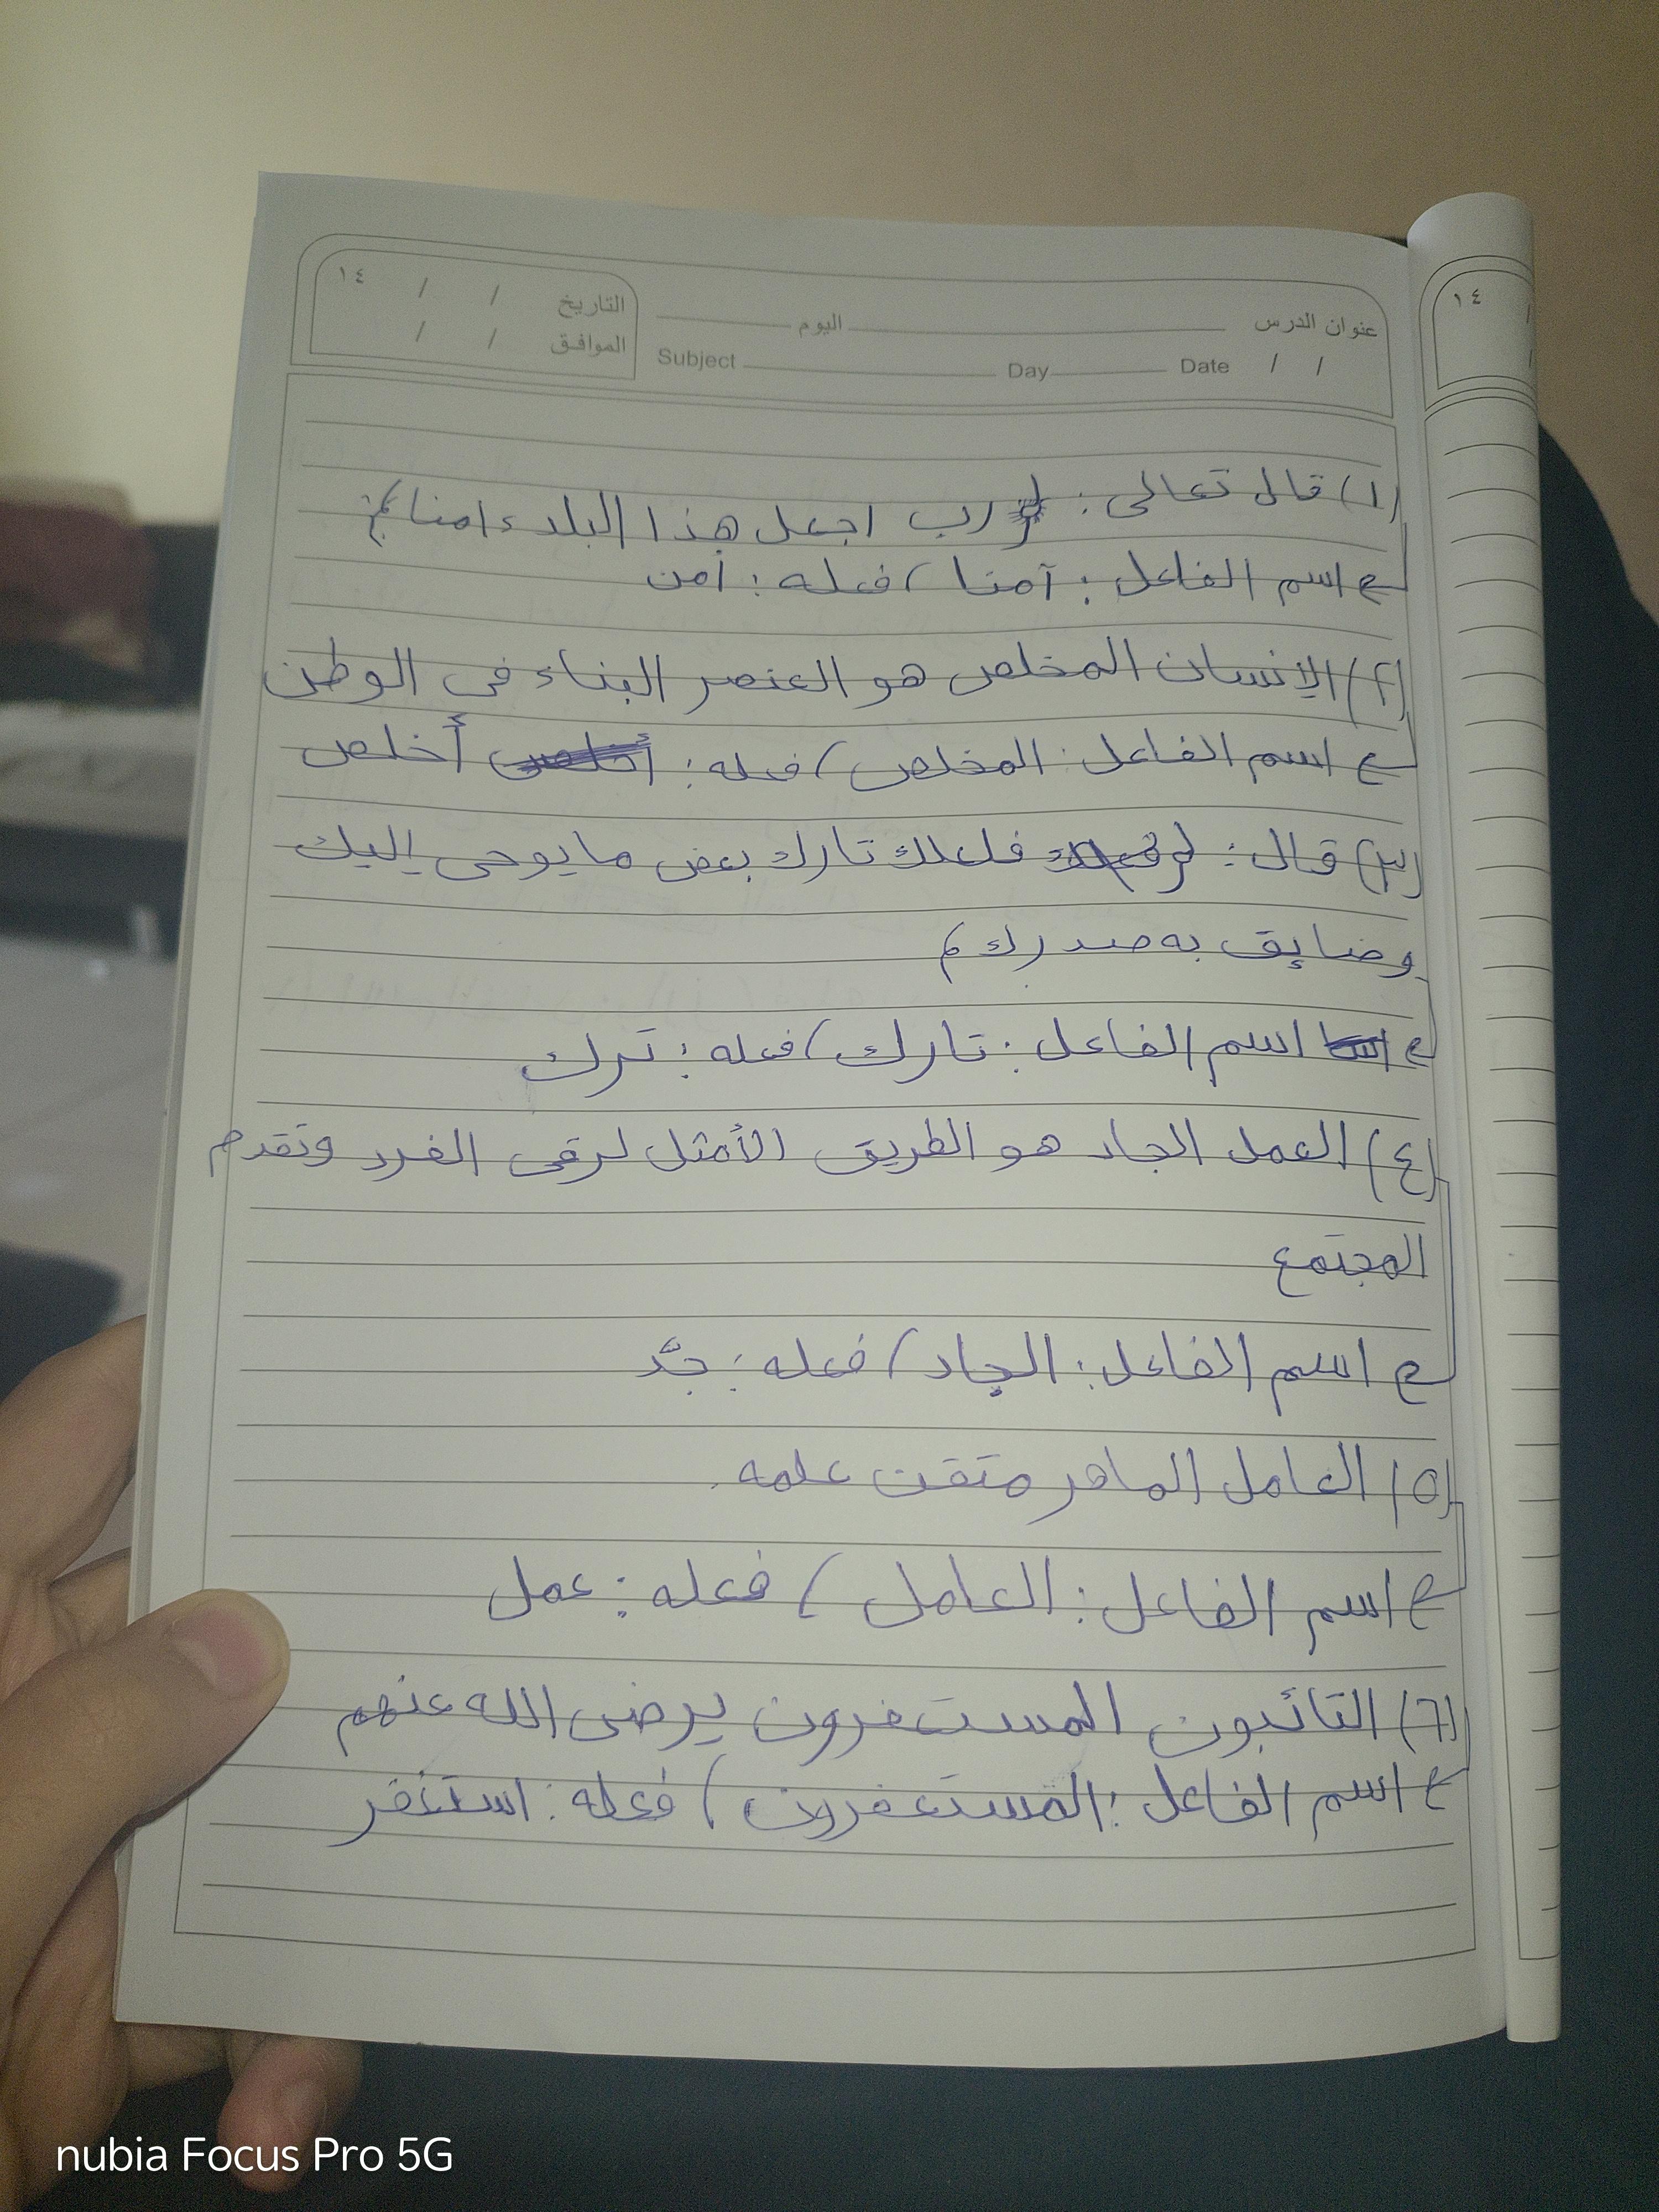 عنوان الدرس اليوم التاريخ / / ١٤
Subject Day Date / / الموافق / /
١٤
(١) قال تعالى: ﴿رب اجعل هذا البلد ءامنا﴾
اسم الفاعل: آمنا / فعله: أمن
(٢) الإنسان المخلص هو العنصر البناء في الوطن
اسم الفاعل: المخلص / فعله: أخلص
(٣) قال: ﴿ فلعلك تارك بعض ما يوحى إليك
وضايق به صدرك﴾
اسم الفاعل: تارك / فعله: ترك
(٤) العمل الجاد هو الطريق الأمثل لرقى الفرد وتقدم
المجتمع
اسم الفاعل: الجاد / فعله: جدَّ
(٥) العامل الماهر متقن علمه.
اسم الفاعل: العامل / فعله: عمل
(٦) التائبون المستغفرون يرضى الله عنهم
اسم الفاعل: المستغفرون / فعله: استغفر
nubia Focus Pro 5G